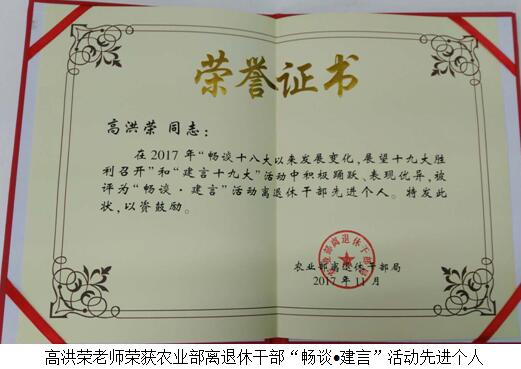 荣誉证书
高洪荣 同志：
在2017年“畅谈十八大以来发展变化，展望十九大胜
利召开”和“建言十九大”活动中积极踊跃、表现优异，被
评为“畅谈·建言”活动离退休干部先进个人。特发此
状，以资鼓励。
农业部离退休干部局
2017年11月
高洪荣老师荣获农业部离退休干部“畅谈•建言”活动先进个人